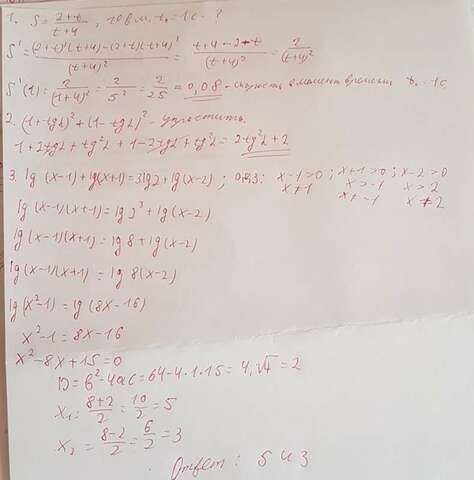 1. S = (2+t)/(t+4), t₀ = 1c. ?
S' = ((2+t)'(t+4) - (2+t)(t+4)')/(t+4)² = (t+4-2-t)/(t+4)² = 2/(t+4)²
S'(1) = 2/(1+4)² = 2/5² = 2/25 = 0,08 - скорость в момент времени t₀ = 1c.
2. (1+tgα)² + (1-tgα)² - упростить.
1+2tgα+tg²α+1-2tgα+tg²α = 2tg²α+2
3. lg(x-1)+lg(x+1)=3lg2+lg(x-2); ОДЗ: x-1>0; x+1>0; x-2>0
x≠1 x>-1 x>2
x≠-1 x≠2
lg(x-1)(x+1)=lg2³+lg(x-2)
lg(x-1)(x+1)=lg8+lg(x-2)
lg(x-1)(x+1)=lg8(x-2)
lg(x²-1)=lg(8x-16)
x²-1=8x-16
x²-8x+15=0
D=b²-4ac=64-4·1·15=4, √4=2
x₁=(8+2)/2=10/2=5
x₂=(8-2)/2=6/2=3
Ответ: 5 и 3